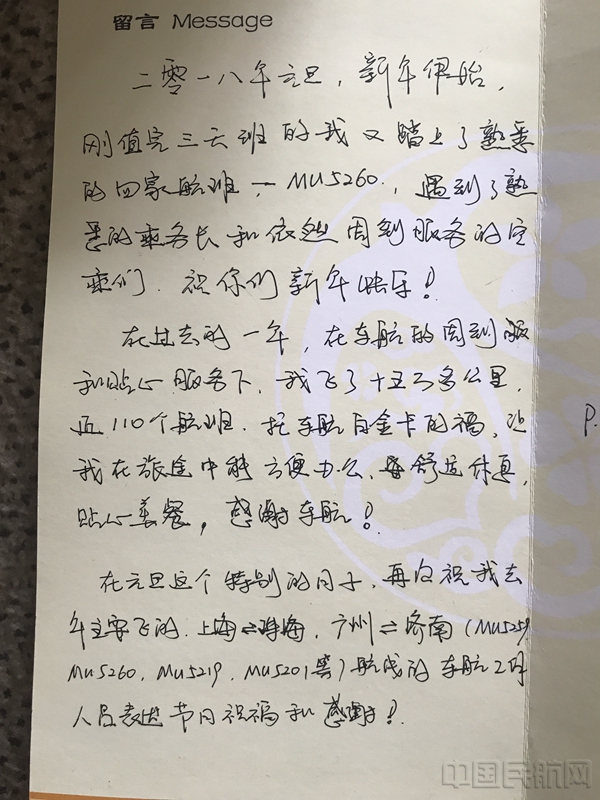 留言 Message
二零一八年元旦，新年伊始，
刚值完三天班的我又踏上了熟悉
的回家航班，—MU5260，遇到了熟
悉的乘务长和依然周到服务的空
乘们．祝你们新年快乐！
在过去的一年，在东航的周到服
和贴心服务下，我飞了十五万多公里，
近110个航班．托东航白金卡的福，让
我在旅途中能方便办公、舒适休息，
贴心美餐，感谢东航！
在元旦这个特别的日子，再次祝我去
年主要飞的．上海⇌珠海，广州⇌济南（MU5259
MU5260，MU5219，MU5201等）航线的东航工作
人员表达节日祝福和感谢！
P.
中国民航网